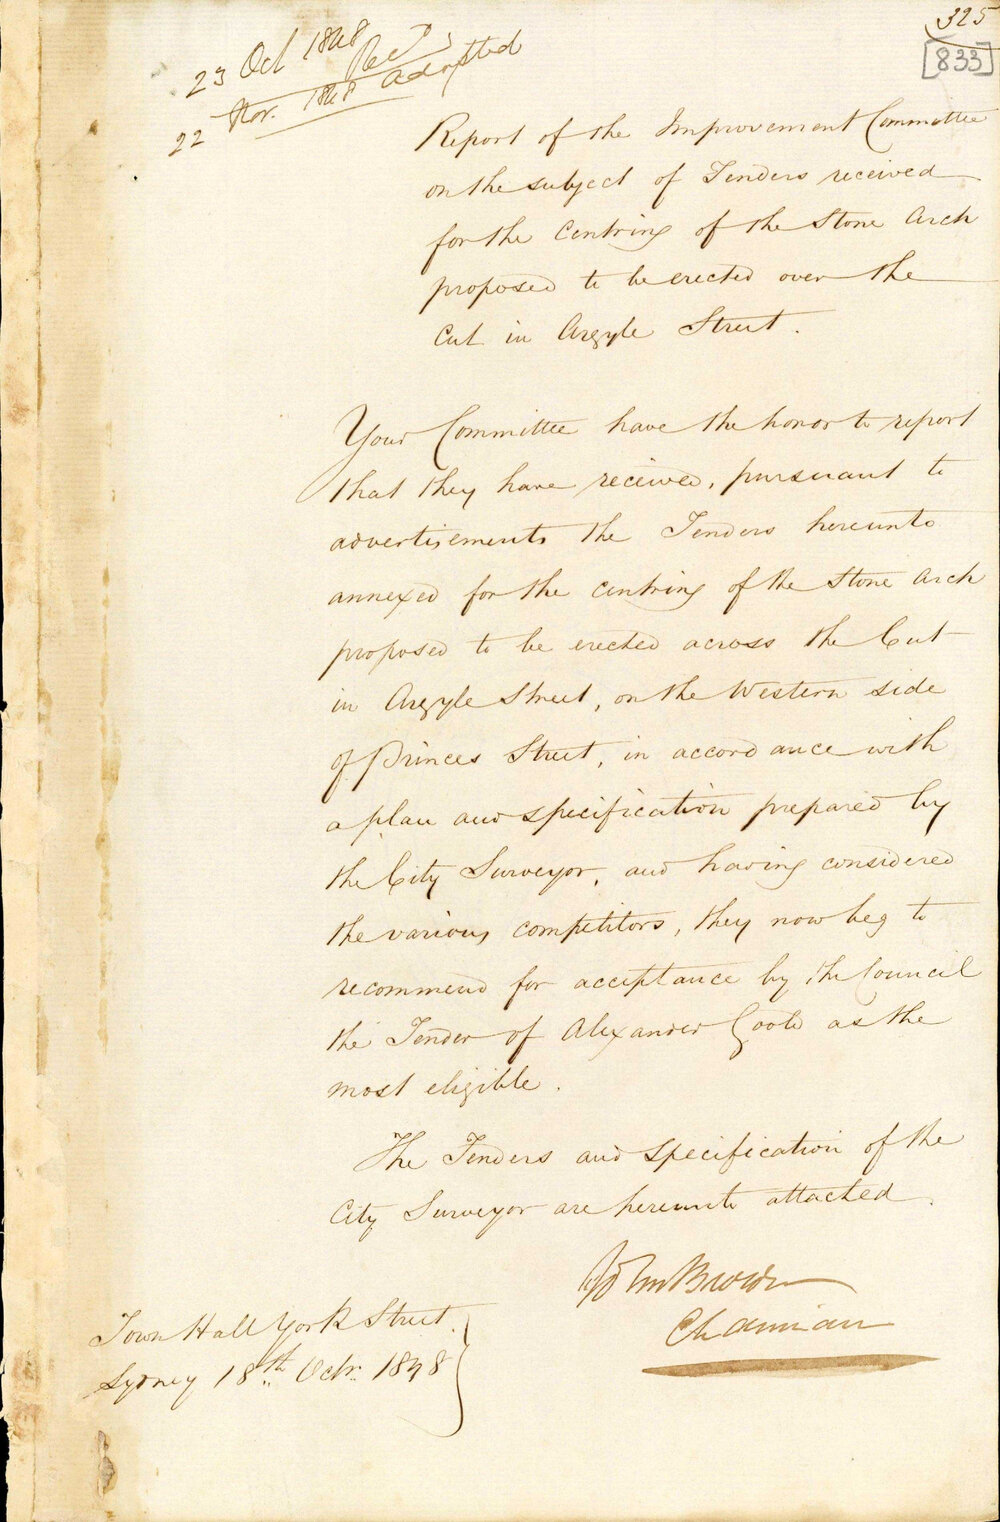 325
[833]
23 Oct 1848 Recd
22 Nov. 1848 adopted
Report of the Improvement Committee
on the subject of Tenders received
for the Centring of the Stone Arch
proposed to be erected over the
Cut in Argyle Street.
Your Committee have the honor to report
that they have received, pursuant to
advertisements the Tenders hereunto
annexed for the centring of the Stone Arch
proposed to be erected across the Cut
in Argyle Street, on the Western side
of Princes Street, in accordance with
a plan and specification prepared by
the City Surveyor, and having considered
the various competitors, they now beg to
recommend for acceptance by the Council
the Tender of Alexander Goold as the
most eligible.
The Tenders and Specification of the
City Surveyor are hereunto attached.
John Brown
Chairman
Town Hall York Street
Sydney 18th Octr. 1848